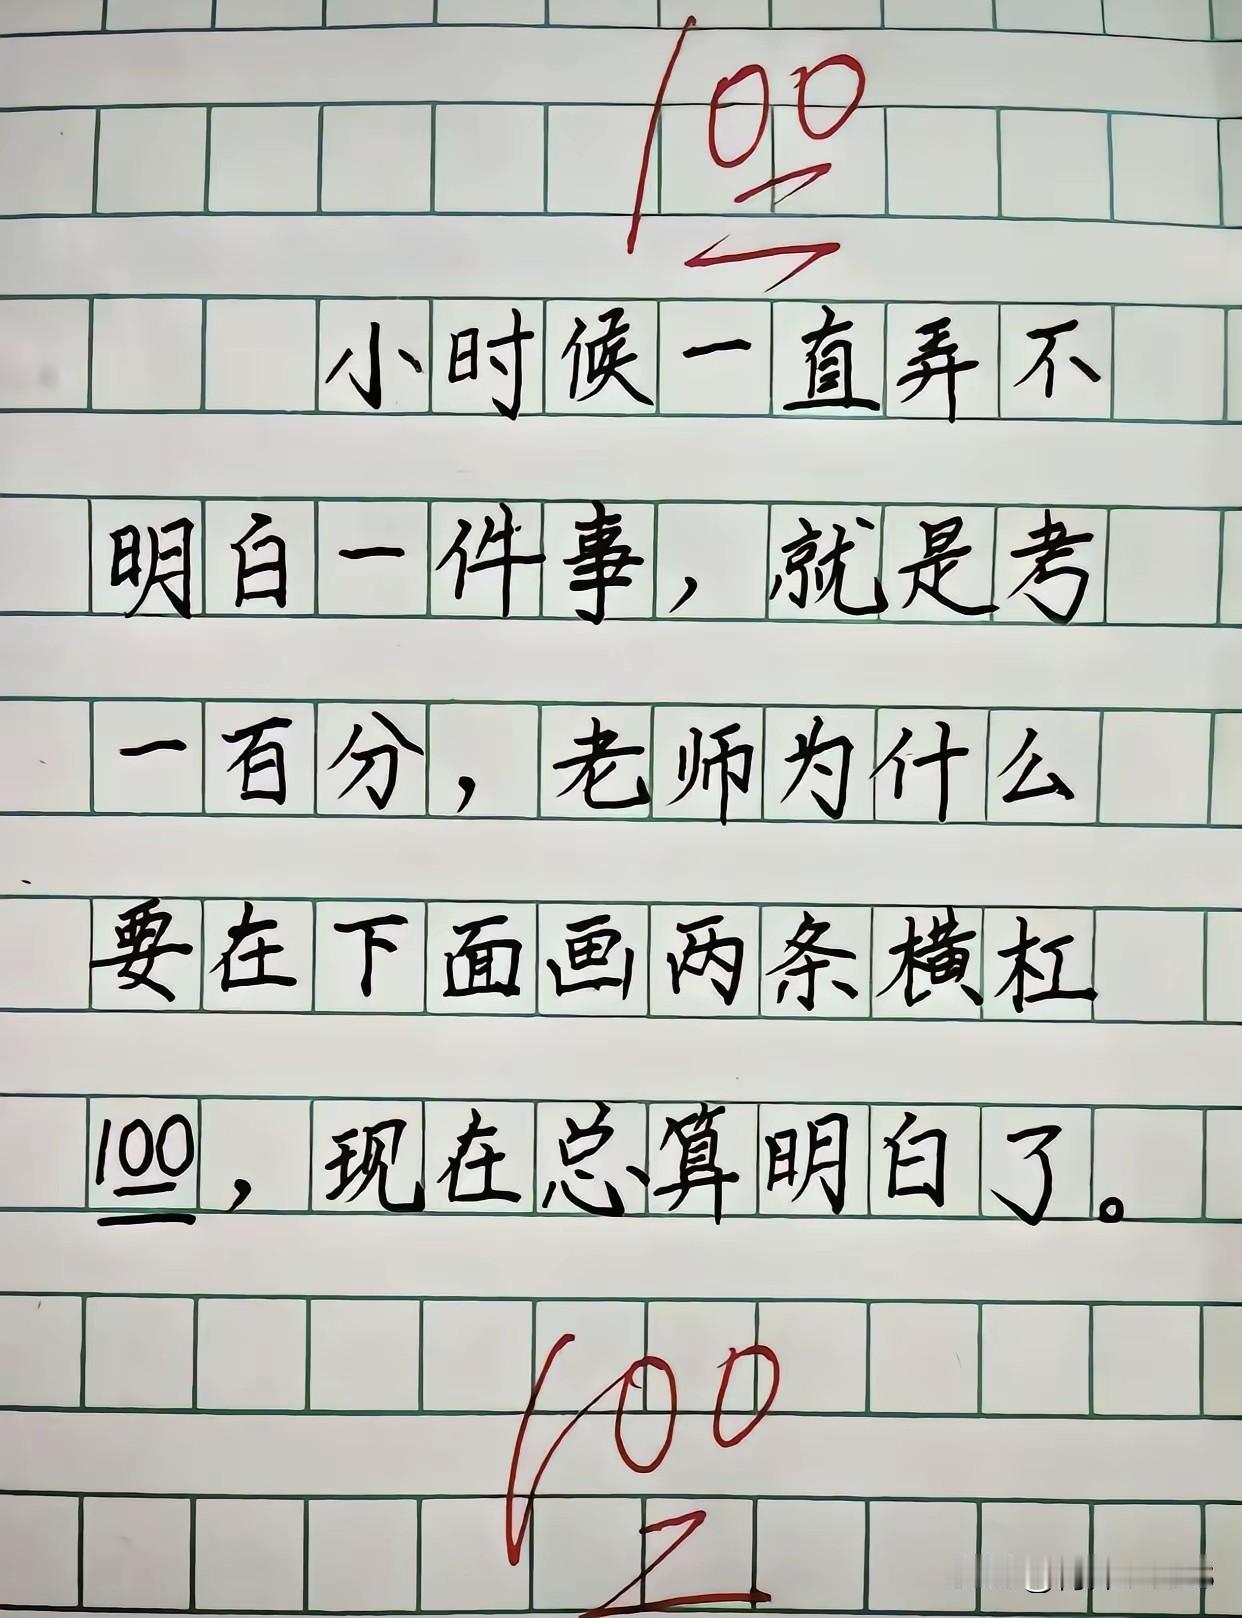 100
小时候一直弄不
明白一件事，就是考
一百分，老师为什么
要在下面画两条横杠
100，现在总算明白了。
100